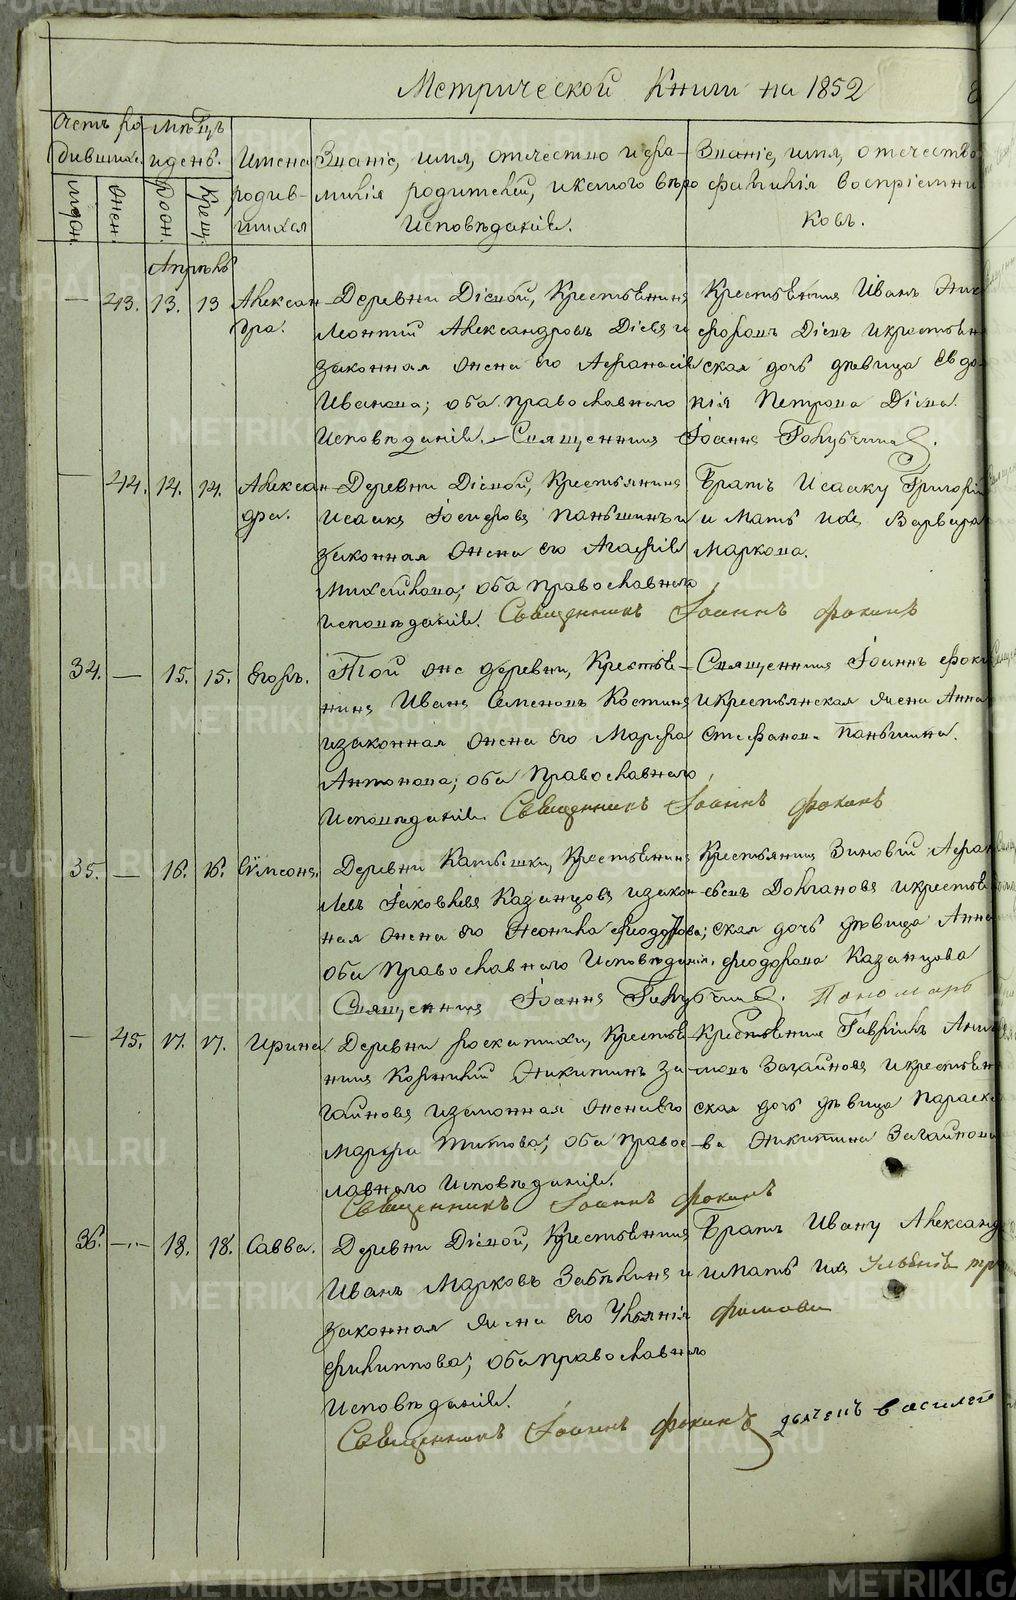 Метрической Книги на 1852
Счетъ ро-
дившихс.
Мѣсяцъ
и день.
Имена
родив-
шихся
Званіе, имя, отечество и фа-
милія родителей, и какого вѣро
исповѣданія.
Званіе, имя, отечество
фамилія воспріемни
ковъ.
муж.
жен.
рож.
Крещ.
Апрѣль
— 43. 13. 13 Алексан-
дра.
Деревни Дісвой, Крестьянинъ
Леонтій Александровъ Дісвъ и
законная жена его Афанасія
Иванова; оба православнаго
исповѣданія. — Священникъ Іоаннъ Голубчик
Крестьянинъ Иванъ Ник
форовъ Дісвъ и крестьян
ская дочь дѣвица Евдо
кія Петрова Дісва.
— 44. 14. 14. Алексан-
дра.
Деревни Дісвой, Крестьянинъ
Исаакъ Іосифовъ Паньшинъ и
законная жена его Агафія
Михайлова; оба православнаго
исповѣданія. Священникъ Іоаннъ Фокинъ
Братъ Исааку Григорій
и Мать ихъ Варвара
Маркова.
34. — 15. 15. Егоръ.
Той же деревни, Крестья-
нинъ Иванъ Семеновъ Костинъ
и законная жена его Марфа
Антонова; оба Православнаго
Исповѣданія. Священникъ Іоаннъ Фокинъ
Священникъ Іоаннъ Фоки
и Крестьянская жена Анна
Стефанова Паньшина.
35. — 16. 16. Сѵмеонъ.
Деревни Катышки, Крестьянинъ
Левъ Іаковлевъ Казанцовъ и закон
ная жена его Неонила Феодорова;
оба Православнаго Исповѣданія.
Священникъ Іоаннъ Голубчик. Пономарь
Крестьянинъ Зиновій Афан
сьевъ Долгановъ и крестья
ская дочь дѣвица Анна
Феодорова Казанцова
— 45. 17. 17. Ирина
Деревни Роскатихи, Крестья
нинъ Корнилій Никитинъ За-
гайновъ и законная жена его
Марфа Титова; оба Правос-
лавнаго Исповѣданія.
Священникъ Іоаннъ Фокинъ
Крестьянинъ Гавріилъ Ани
мовъ Загайновъ и крестьян
ская дочь дѣвица Параске
ва Никитина Загайнова
36. — 18. 18. Савва.
Деревни Дісвой, Крестьянинъ
Иванъ Марковъ Забѣлинъ и
законная жена его Ульянія
Филиппова; оба православнаго
Исповѣданія.
Священникъ Іоаннъ Фокинъ дьячекъ Василей
Братъ Ивану Александ
и мать ихъ Ульянія тр
Фомова
METRIKI.GASO-URAL.RU